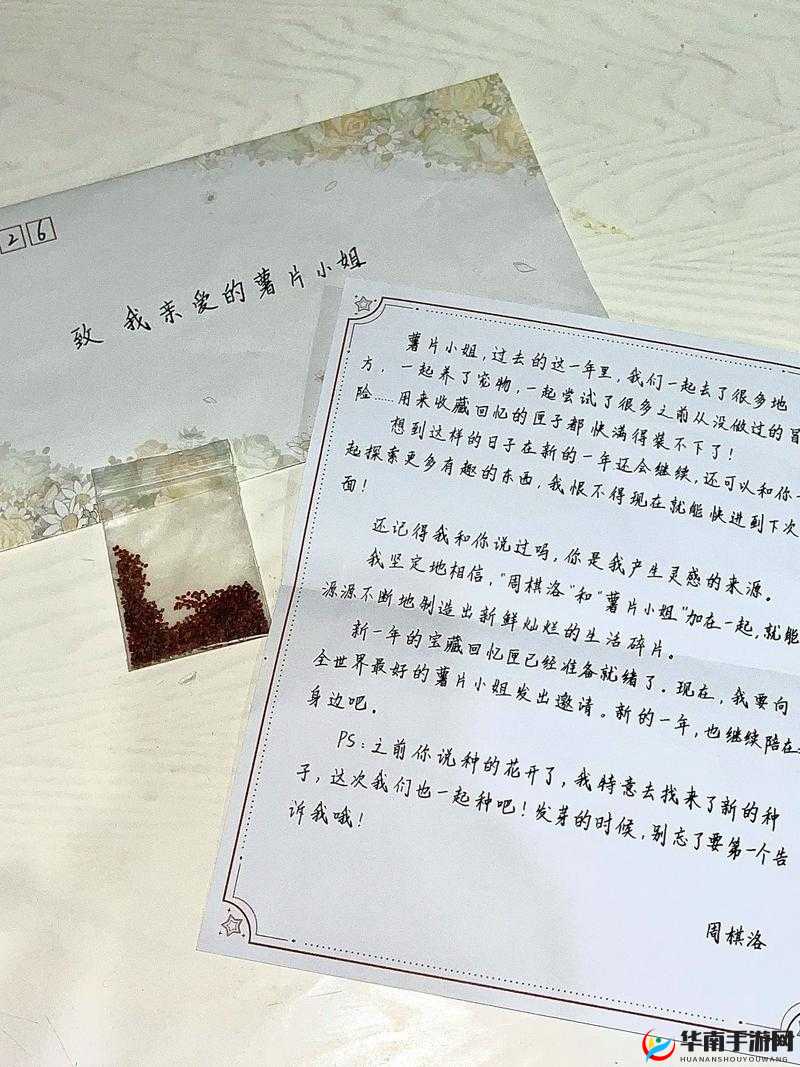 26
致 我亲爱的薯片小姐
薯片小姐，过去的这一年里，我们一起去了很多地
方，一起养了宠物，一起尝试了很多之前从没做过的冒
险……用来收藏回忆的匣子都快满得装不下了！
想到这样的日子在新的一年还会继续，还可以和你一
起探索更多有趣的东西，我恨不得现在就能快进到下次
面！
还记得我和你说过吗，你是我产生灵感的来源。
我坚定地相信，“周棋洛”和“薯片小姐”加在一起，就能
源源不断地制造出新鲜灿烂的生活碎片。
新一年的宝藏回忆匣已经准备就绪了。现在，我要向
全世界最好的薯片小姐发出邀请。新的一年，也继续陪在
身边吧。
PS：之前你说种的花开了，我特意去找来了新的种
子，这次我们也一起种吧！发芽的时候，别忘了要第一个告
诉我哦！
周棋洛
华南手游网
HUANANSHOUYOUWANG